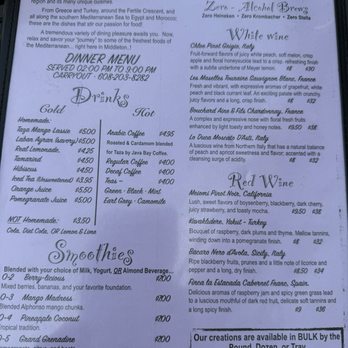 region and its many cuisines.
From Greece and Turkey, around the Fertile Crescent, and
all along the southern Mediterranean Sea to Egypt and Morocco;
these are the dishes that stir our passion for food!
A tremendous variety of dining pleasures awaits you. Now,
relax and savor your "journey" to some of the freshest foods of
the Mediterranean... right here in Middleton..!
DINNER MENU
SERVED 02:00 PM TO 9:00 PM
CARRYOUT - 608-203-8282
Drinks
Cold
Homemade:
Mango Lassie $5.00
Laban Ayran (savory) $5.00
Real Lemonade $4.25
Tamarind $4.50
Hibiscus $4.50
Iced Tea (Unsweetened) $3.95
Orange Juice $5.50
Pomegranate Juice $5.00
NOT Homemade: $3.50
Cola, Diet Cola, OR Lemon & Lime
Hot
Arabic Coffee $4.95
Roasted & Cardamom blended
for Taza by Java Bay Coffee.
Regular Coffee $4.00
Decaf Coffee $4.00
Teas $4.00
Green - Black - Mint
Earl Grey - Camomile
Smoothies
Blended with your choice of Milk, Yogurt, OR Almond Beverage...
0-2 Berry-licious $7.00
Mixed berries, bananas, and your favorite foundation.
0-3 Mango Madness $7.00
Blended Alphonso mango chunks.
0-4 Pineapple Coconut $7.00
Tropical tradition.
0-5 Grand Grenadine $7.00
Zero - Alcohol Beers
Zero Heineken - Zero Krombacher - Zero Stella
White wine
Pinot Grigio, Italy
Fruit-forward flavors of juicy white peach, soft melon, crisp
apple and floral honeysuckle lead to a crisp, refreshing finish
with a subtle undertone of Meyer lemon. $8 $30
Les Maselles Touraine Sauvignon Blanc, France
Fresh and vibrant, with expressive aromas of grapefruit, white
peach and black currant leaf. An exciting palate with crunchy,
juicy flavors and a long, crisp finish. $8 $32
Bouchard Aine & Fils Chardonnay, France
A complex and expressive nose with floral fresh fruits
enhanced by light toasty and honey notes. $9.50 $38
Moscato D'Asti, Italy
A luscious wine from Northern Italy that has a natural balance
of peach and apricot sweetness and flavor; accented with a
cleansing surge of acidity. $8 $32
Red Wine
Pinot Noir, California
Lush, sweet flavors of boysenberry, blackberry, dark cherry,
juicy strawberry, and toasty mocha. $9.50 $38
Kavaklidere, Yakut - Turkey
Bouquet of raspberry, dark plums and thyme. Mallow tannins,
winding down into a pomegranate finish. $8 $32
Nero d'Avola, Sicily, Italy
Ripe blackberry fruits, prunes and a little note of licorice and
pepper and a long, dry finish. $8.50 $34
Finca la Estacada Cabernet Franc, Spain
Delicious aromas of raspberry jam and spicy green grass lead
to a luscious mouthful of dark red fruit, delicate soft tannins and
a long spicy finish. $9 $36
Our creations are available in BULK by the
Pound, Dozen, or Tray